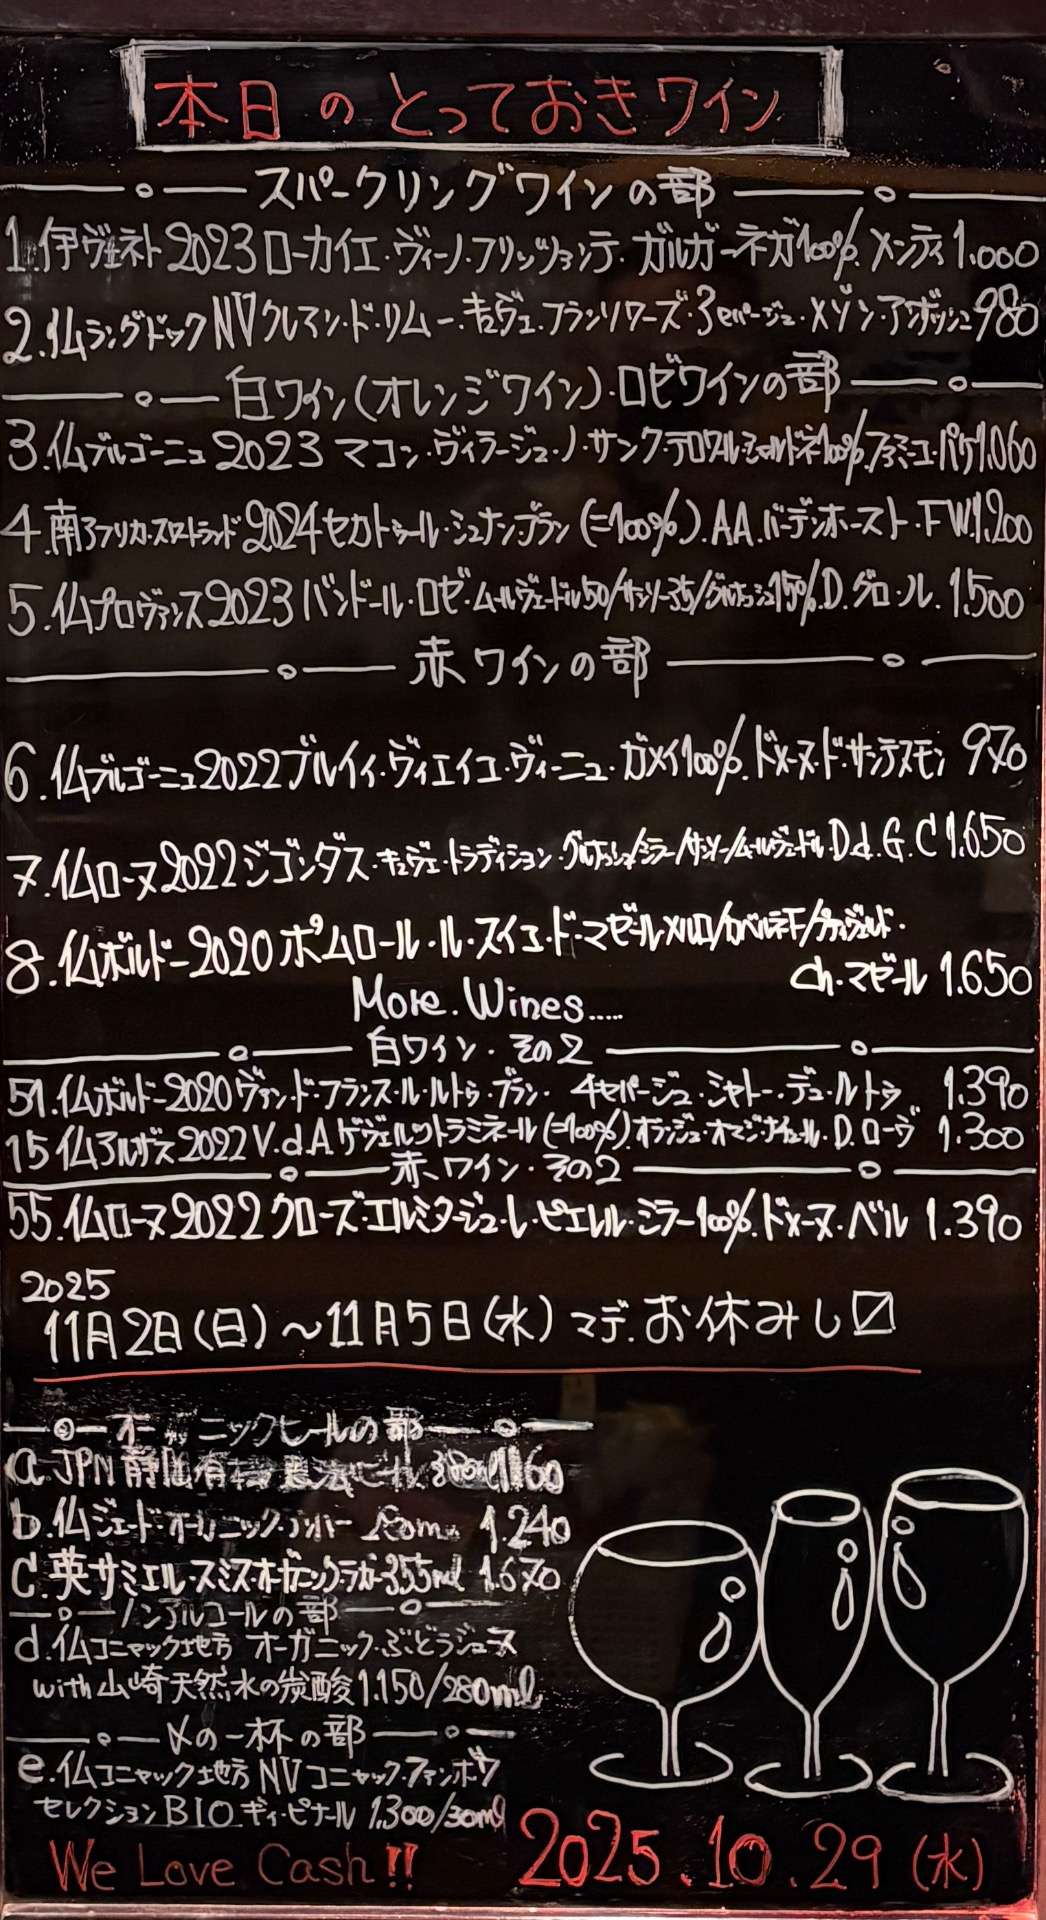 本日のとっておきワイン
スパークリングワインの部
1.伊ヴェネト2023ローカイエ・ヴィーノ・フリッツァンテ・ガルガーネガ100%.メンティ1.000
2.仏ラングドックNVクレマン・ド・リムー・キュヴェ・フランソワーズ・3セパージュ・メゾン・アンボッシュ980
白ワイン(オレンジワイン)・ロゼワインの部
3.仏ブルゴーニュ2023マコン・ヴィラージュ・ノ・サンク・テロワル・シャルドネ100%.ファミーユ・パケ1.060
4.南アフリカ・スワートランド2024セカトゥール・シュナン・ブラン(=100%).AA.バーデンホースト・FW1.200
5.仏プロヴァンス2023バンドール・ロゼ・ムールヴェードル50/サンソー35/グルナッシュ15%.D.グロ・ノル.1.500
赤ワインの部
6.仏ブルゴーニュ2022ブルイィ・ヴィエイユ・ヴィーニュ・ガメイ100%.ドメーヌ・ド・サンテスモン970
7.仏ローヌ2022ジゴンダス・キュヴェ・トラディション・グルナッシュ/シラー/サンソー/ムールヴェードルD.d.G.C1.650
8.仏ボルドー2020ポムロール・ル・スイユ・ド・マゼールメルロ/カベルネF/
ch.マゼール1.650
More.Wines.....
白ワイン・その2
51.仏ボルドー2020ヴァン・ド・フランス・ル・ルトゥ・ブラン・4セパージュ・シャトー・デュ・ルトゥ 1.390
15仏アルザス2022V.d.Aゲヴェルツトラミネール(=100%).オランジュ・オマジナイユール.D.ローヴ 1.300
赤ワイン・その2
55.仏ローヌ2022クローズ・エルミタージュ・レ・ピエレル・シラー100%.ドメーヌ・ベル 1.390
2025
11月2日(日)～11月5日(水)マデ.お休みし〼
オーガニックビールの部
a.JPN静岡有機農法ビール 1.160
b.仏ジェード・オーガニック・アンバー 1.240
c.英サミエル・スミスオーガニックラガー355ml 1.670
ノンアルコールの部
d.仏コニャック地方 オーガニック・ぶどうジュース
with山崎天然水の炭酸1.150/280ml
〆の一杯の部
e.仏コニャック地方NVコニャック・ファンボワ
セレクションBIO ギィ・ピナール 1.300/30ml
We Love Cash!!
2025.10.29(水)